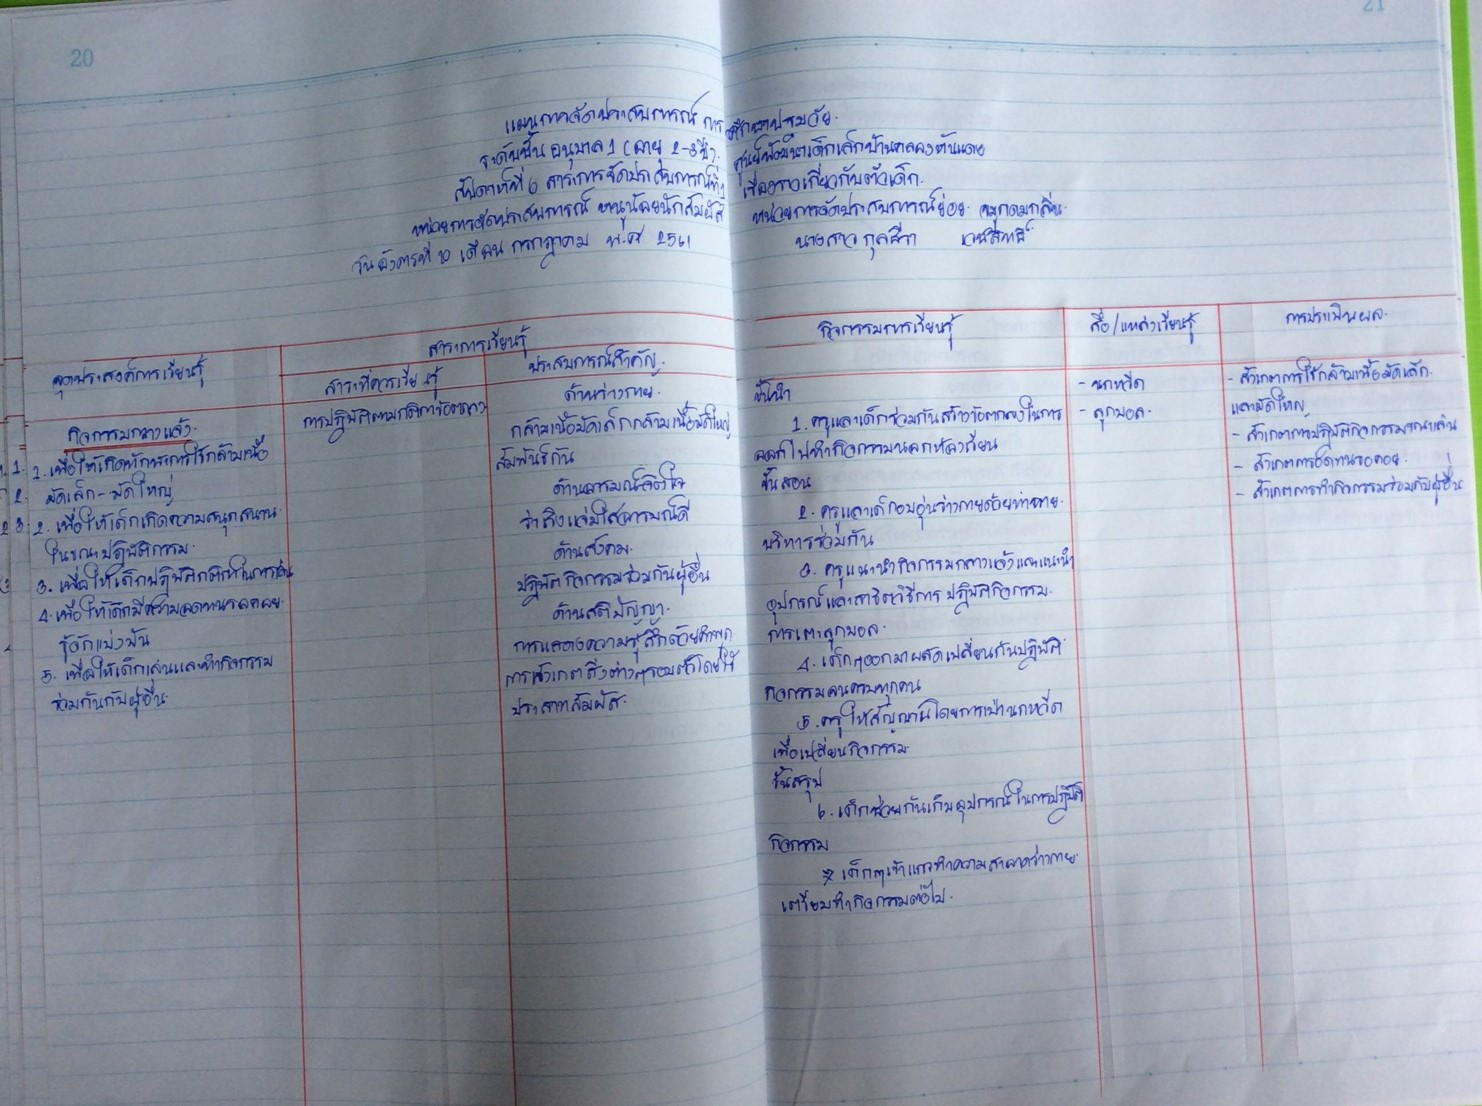 20
21
แผนการจัดประสบการณ์ การศึกษาปฐมวัย
ระดับชั้น อนุบาล 1 (อายุ 2-3 ปี) ศูนย์พัฒนาเด็กเล็กบ้านคลองต้นแดง
สัปดาห์ที่ 6 สาระการจัดประสบการณ์ที่ 1 เรื่องราวเกี่ยวกับตัวเด็ก
หน่วยการจัดประสบการณ์ หนูน้อยนักสัมผัส หน่วยการจัดประสบการณ์ย่อย จมูกดมกลิ่น
วันอังคารที่ 10 เดือน กรกฎาคม พ.ศ 2561 นางสาว
จุดประสงค์การเรียนรู้
สาระการเรียนรู้
สาระที่ควรเรียนรู้
ประสบการณ์สำคัญ
กิจกรรมการเรียนรู้
สื่อ/แหล่งเรียนรู้
การประเมินผล
กิจกรรมกลางแจ้ง
1. เพื่อให้เกิดทักษะการใช้กล้ามเนื้อ
มัดเล็ก-มัดใหญ่
2. เพื่อให้เด็กเกิดความสนุกสนาน
ในขณะปฏิบัติกิจกรรม
3. เพื่อให้เด็กปฏิบัติกติกาในการเล่น
4. เพื่อให้เด็กมีความอดทนรอคอย
รู้จักแบ่งปัน
5. เพื่อให้เด็กเล่นและทำกิจกรรม
ร่วมกันกับผู้อื่น
การปฏิบัติตามกติกาข้อตกลง
ด้านร่างกาย
กล้ามเนื้อมัดเล็กกล้ามเนื้อมัดใหญ่
สัมพันธ์กัน
ด้านอารมณ์จิตใจ
ร่าเริงแจ่มใสอารมณ์ดี
ด้านสังคม
ปฏิบัติกิจกรรมร่วมกับผู้อื่น
ด้านสติปัญญา
การแสดงความรู้สึกด้วยคำพูด
การสังเกตสิ่งต่างๆรอบตัวโดยใช้
ประสาทสัมผัส
ขั้นนำ
1. ครูและเด็กร่วมกันสร้างข้อตกลงในการ
ออกไปทำกิจกรรมนอกห้องเรียน
ขั้นสอน
2. ครูและเด็กอบอุ่นร่างกายด้วยท่ากาย
บริหารร่วมกัน
3. ครูแนะนำกิจกรรมกลางแจ้งและแนะนำ
อุปกรณ์และสาธิตวิธีการปฏิบัติกิจกรรม
การเตะลูกบอล
4. เด็กๆออกมาผลัดเปลี่ยนกันปฏิบัติ
กิจกรรมจนครบทุกคน
5. ครูให้สัญญาณโดยการเป่านกหวีด
เพื่อเปลี่ยนกิจกรรม
ขั้นสรุป
6. เด็กช่วยกันเก็บอุปกรณ์ในการปฏิบัติ
กิจกรรม
7. เด็กๆเข้าแถวทำความสะอาดร่างกาย
เตรียมทำกิจกรรมต่อไป
- นกหวีด
- ลูกบอล
- สังเกตการใช้กล้ามเนื้อมัดเล็ก
และมัดใหญ่
- สังเกตการปฏิบัติกิจกรรมขณะเล่น
- สังเกตการอดทนรอคอย
- สังเกตการทำกิจกรรมร่วมกับผู้อื่น